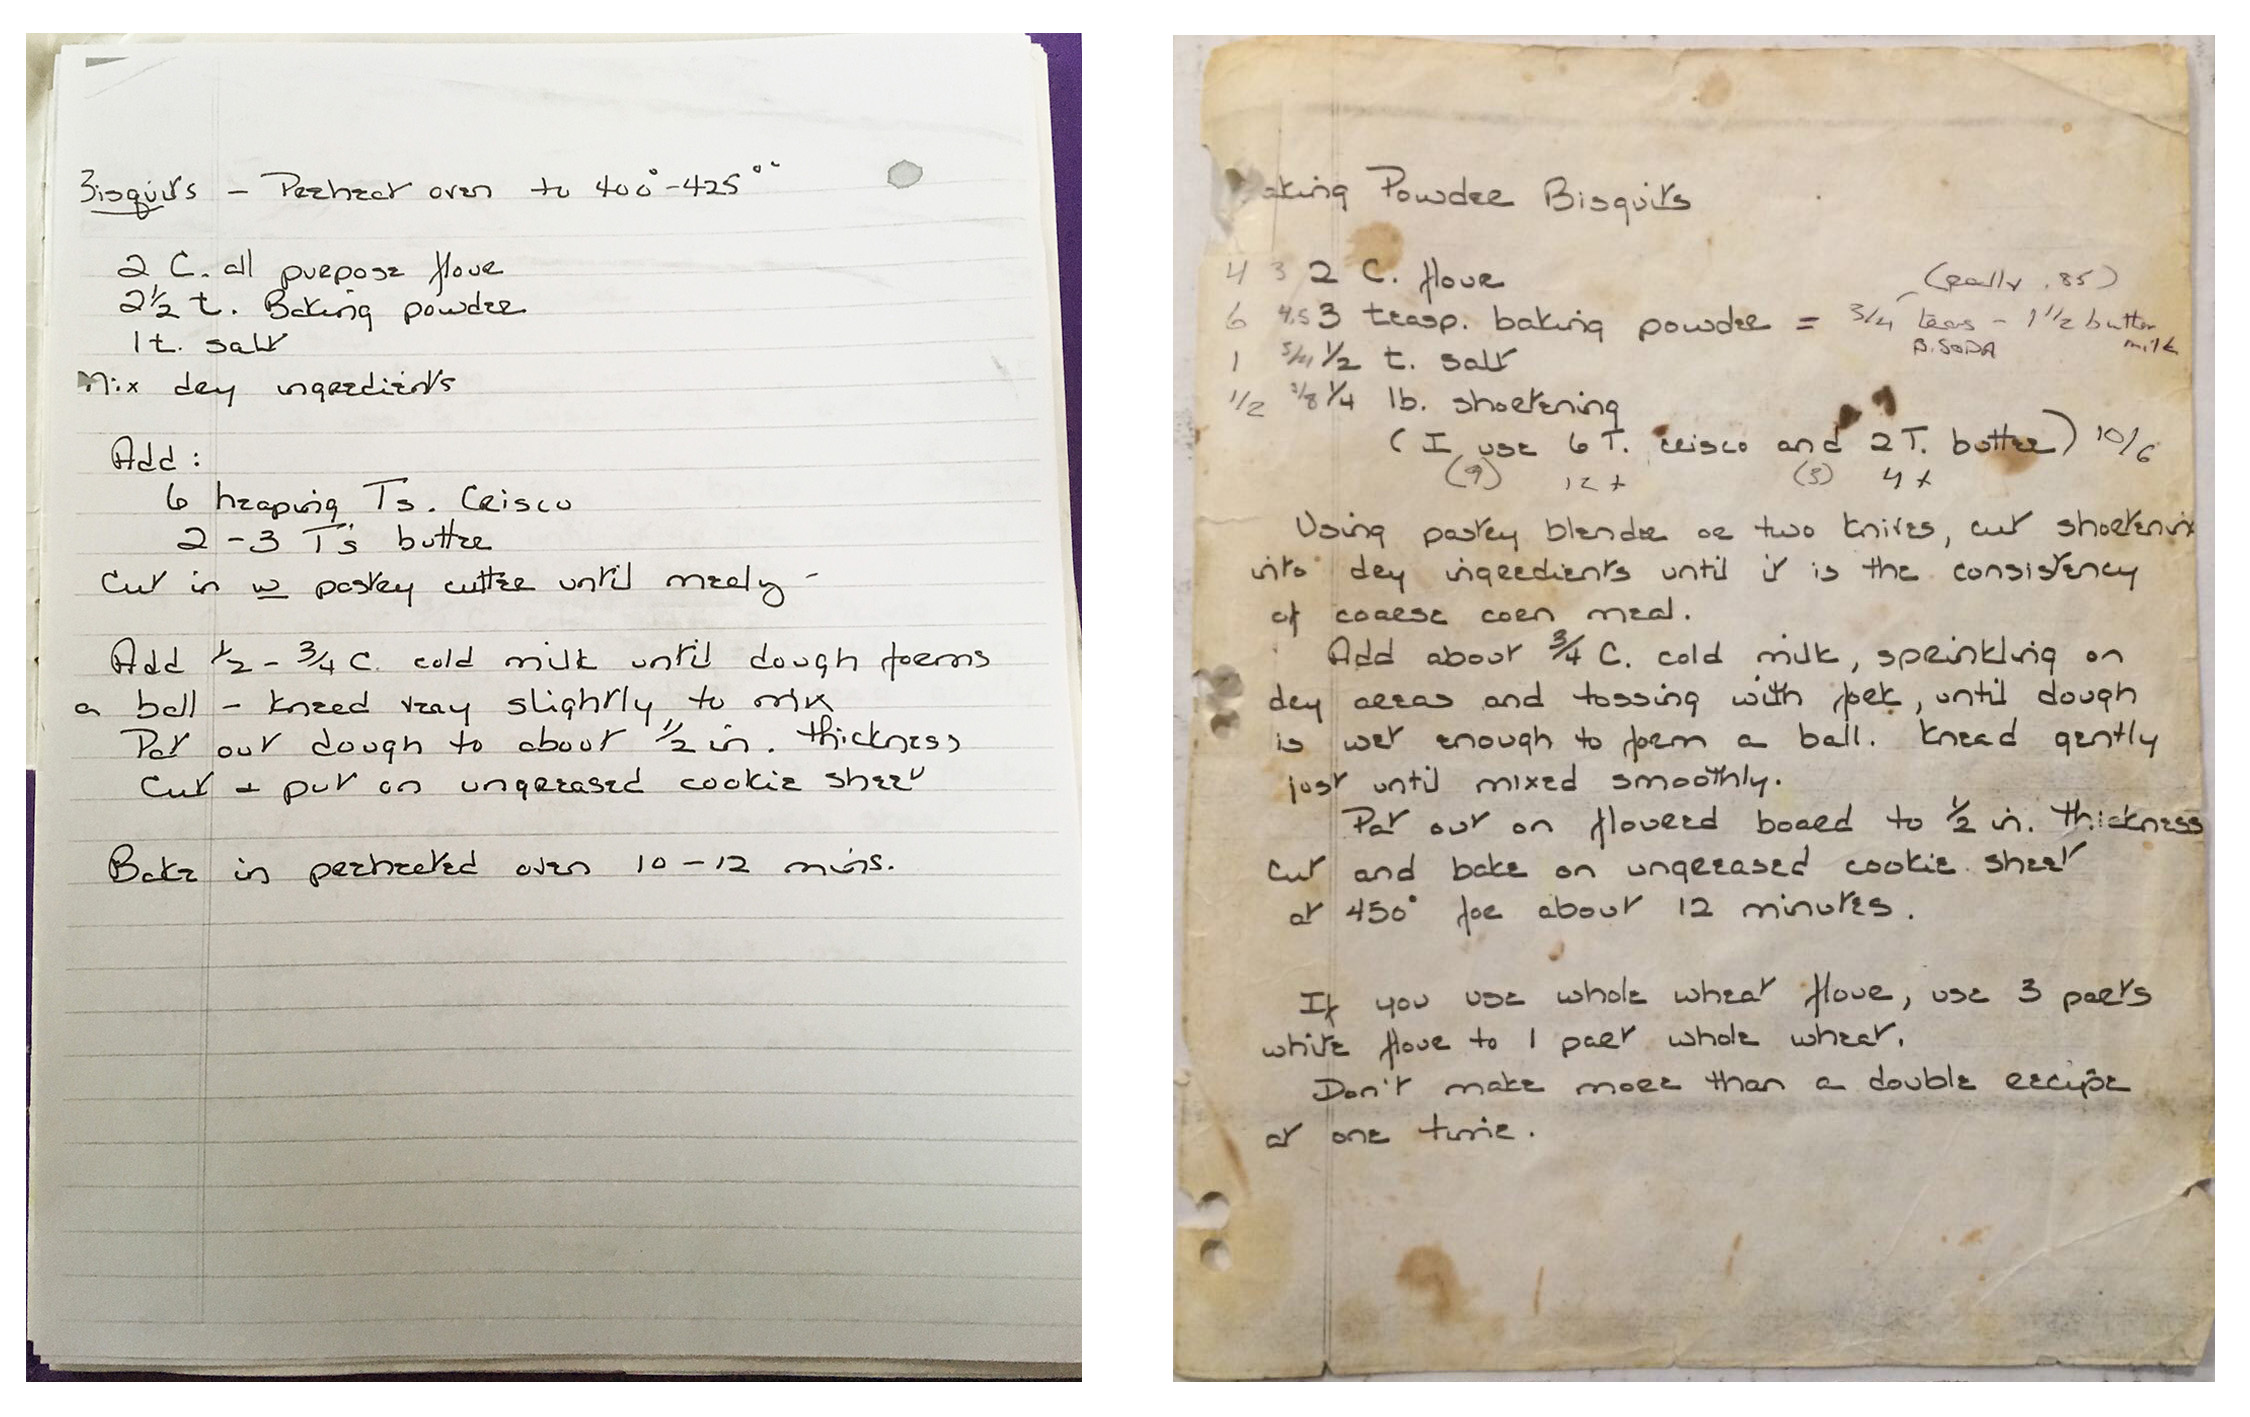 Bisquits - Preheat oven to 400°-425°
2 C. all purpose flour
2½ t. Baking powder
1 t. salt
Mix dry ingredients
Add:
6 heaping Ts. Crisco
2-3 T's butter
Cut in w pastry cutter until mealy -
Add ½ - ¾ C. cold milk until dough forms
a ball - knead very slightly to mix
Pat out dough to about ½ in. thickness
Cut + put on ungreased cookie sheet
Bake in preheated oven 10-12 mins.
Baking Powder Bisquits
4 3 2 C. flour
(really .85)
6 4.5 3 teasp. baking powder = 3/4 teas - 1 1/2 butter
B. SODA milk
1 ½ t. salt
1/2 3/8 1/4 lb. shortening
(I use 6 T. crisco and 2 T. butter) 10/6
(9) 12 + (3) 4 +
Using pastry blender or two knives, cut shortening
into dry ingredients until it is the consistency
of coarse corn meal.
Add about ¾ C. cold milk, sprinkling on
dry areas and tossing with fork, until dough
is wet enough to form a ball. Knead gently
just until mixed smoothly.
Pat out on floured board to ½ in. thickness
Cut and bake on ungreased cookie sheet
at 450° for about 12 minutes.
If you use whole wheat flour, use 3 parts
white flour to 1 part whole wheat.
Don't make more than a double recipe
at one time.